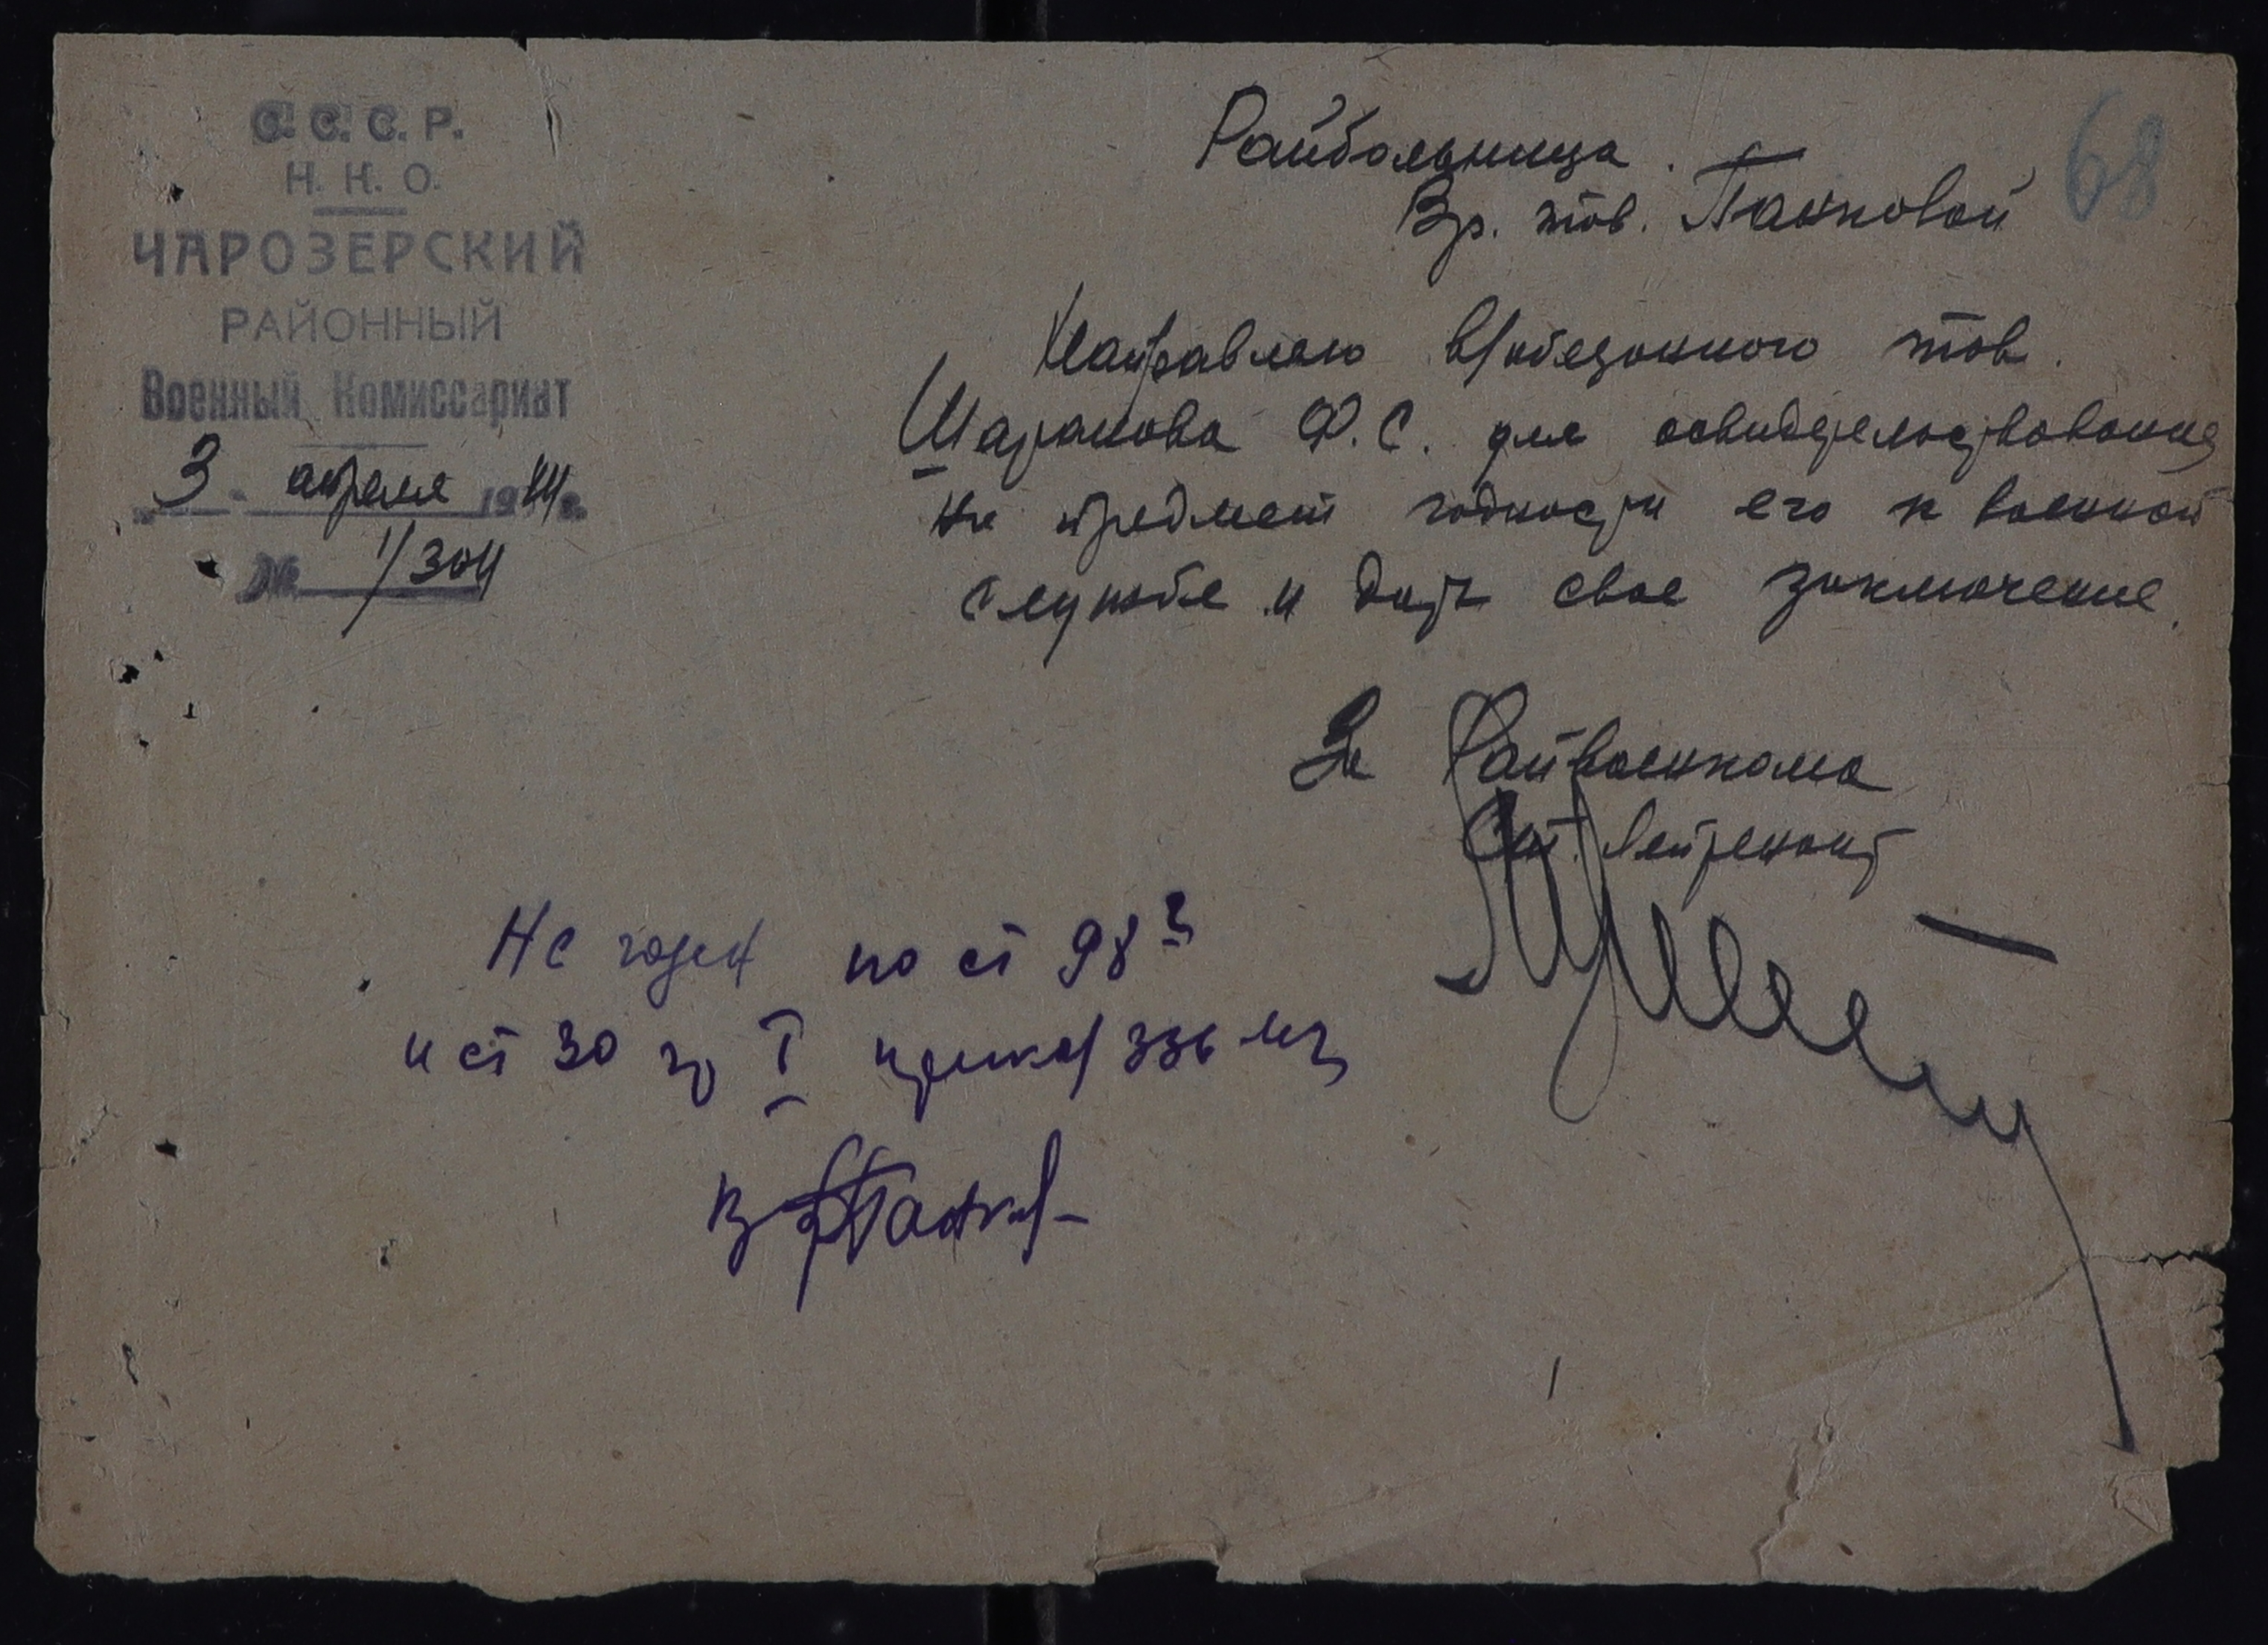 С. С. С. Р.
Н. К. О.
ЧАРОЗЕРСКИЙ
РАЙОННЫЙ
Военный Комиссариат
3 апреля 1944 г.
№ 1/304
68
Райбольница.
Вр. тов. Панковой
Направляю в/обязанного тов.
Шаракова Ф. С. для освидетельствования
на предмет годности его к военной
службе и дать свое заключение.
За Райвоенкома
Ст. Лейтенант
Не годен по ст 98
и ст 30 гр I приказ 336
Вр Панков